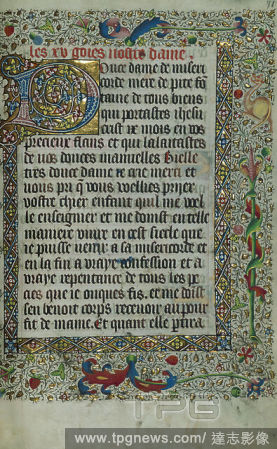 les xv goies nostre dame.
Douce dame de miseri
corde mere de pite fon
taine de tous biens
qui portastes ihesu
crist ix mois en vos
precieux flans et qui lalaitastes
de vos douces mamelles Bielle
tres douce dame ie crie merci et
vous pri que vous voellies prijer
vostre chier enfant quil me voel
le enseignier et me doinst en telle
maniere vivre en cest siecle que
ie puisse venir a sa misericorde et
en la fin a vraye confession et a
vraye repentance de tous les pe
cies que ie onques fis. et me doist
sen benoit corps recevoir au pour
fit de mame. Et quant elle partira
TPG
www.tpgnews.com/ 達志影像